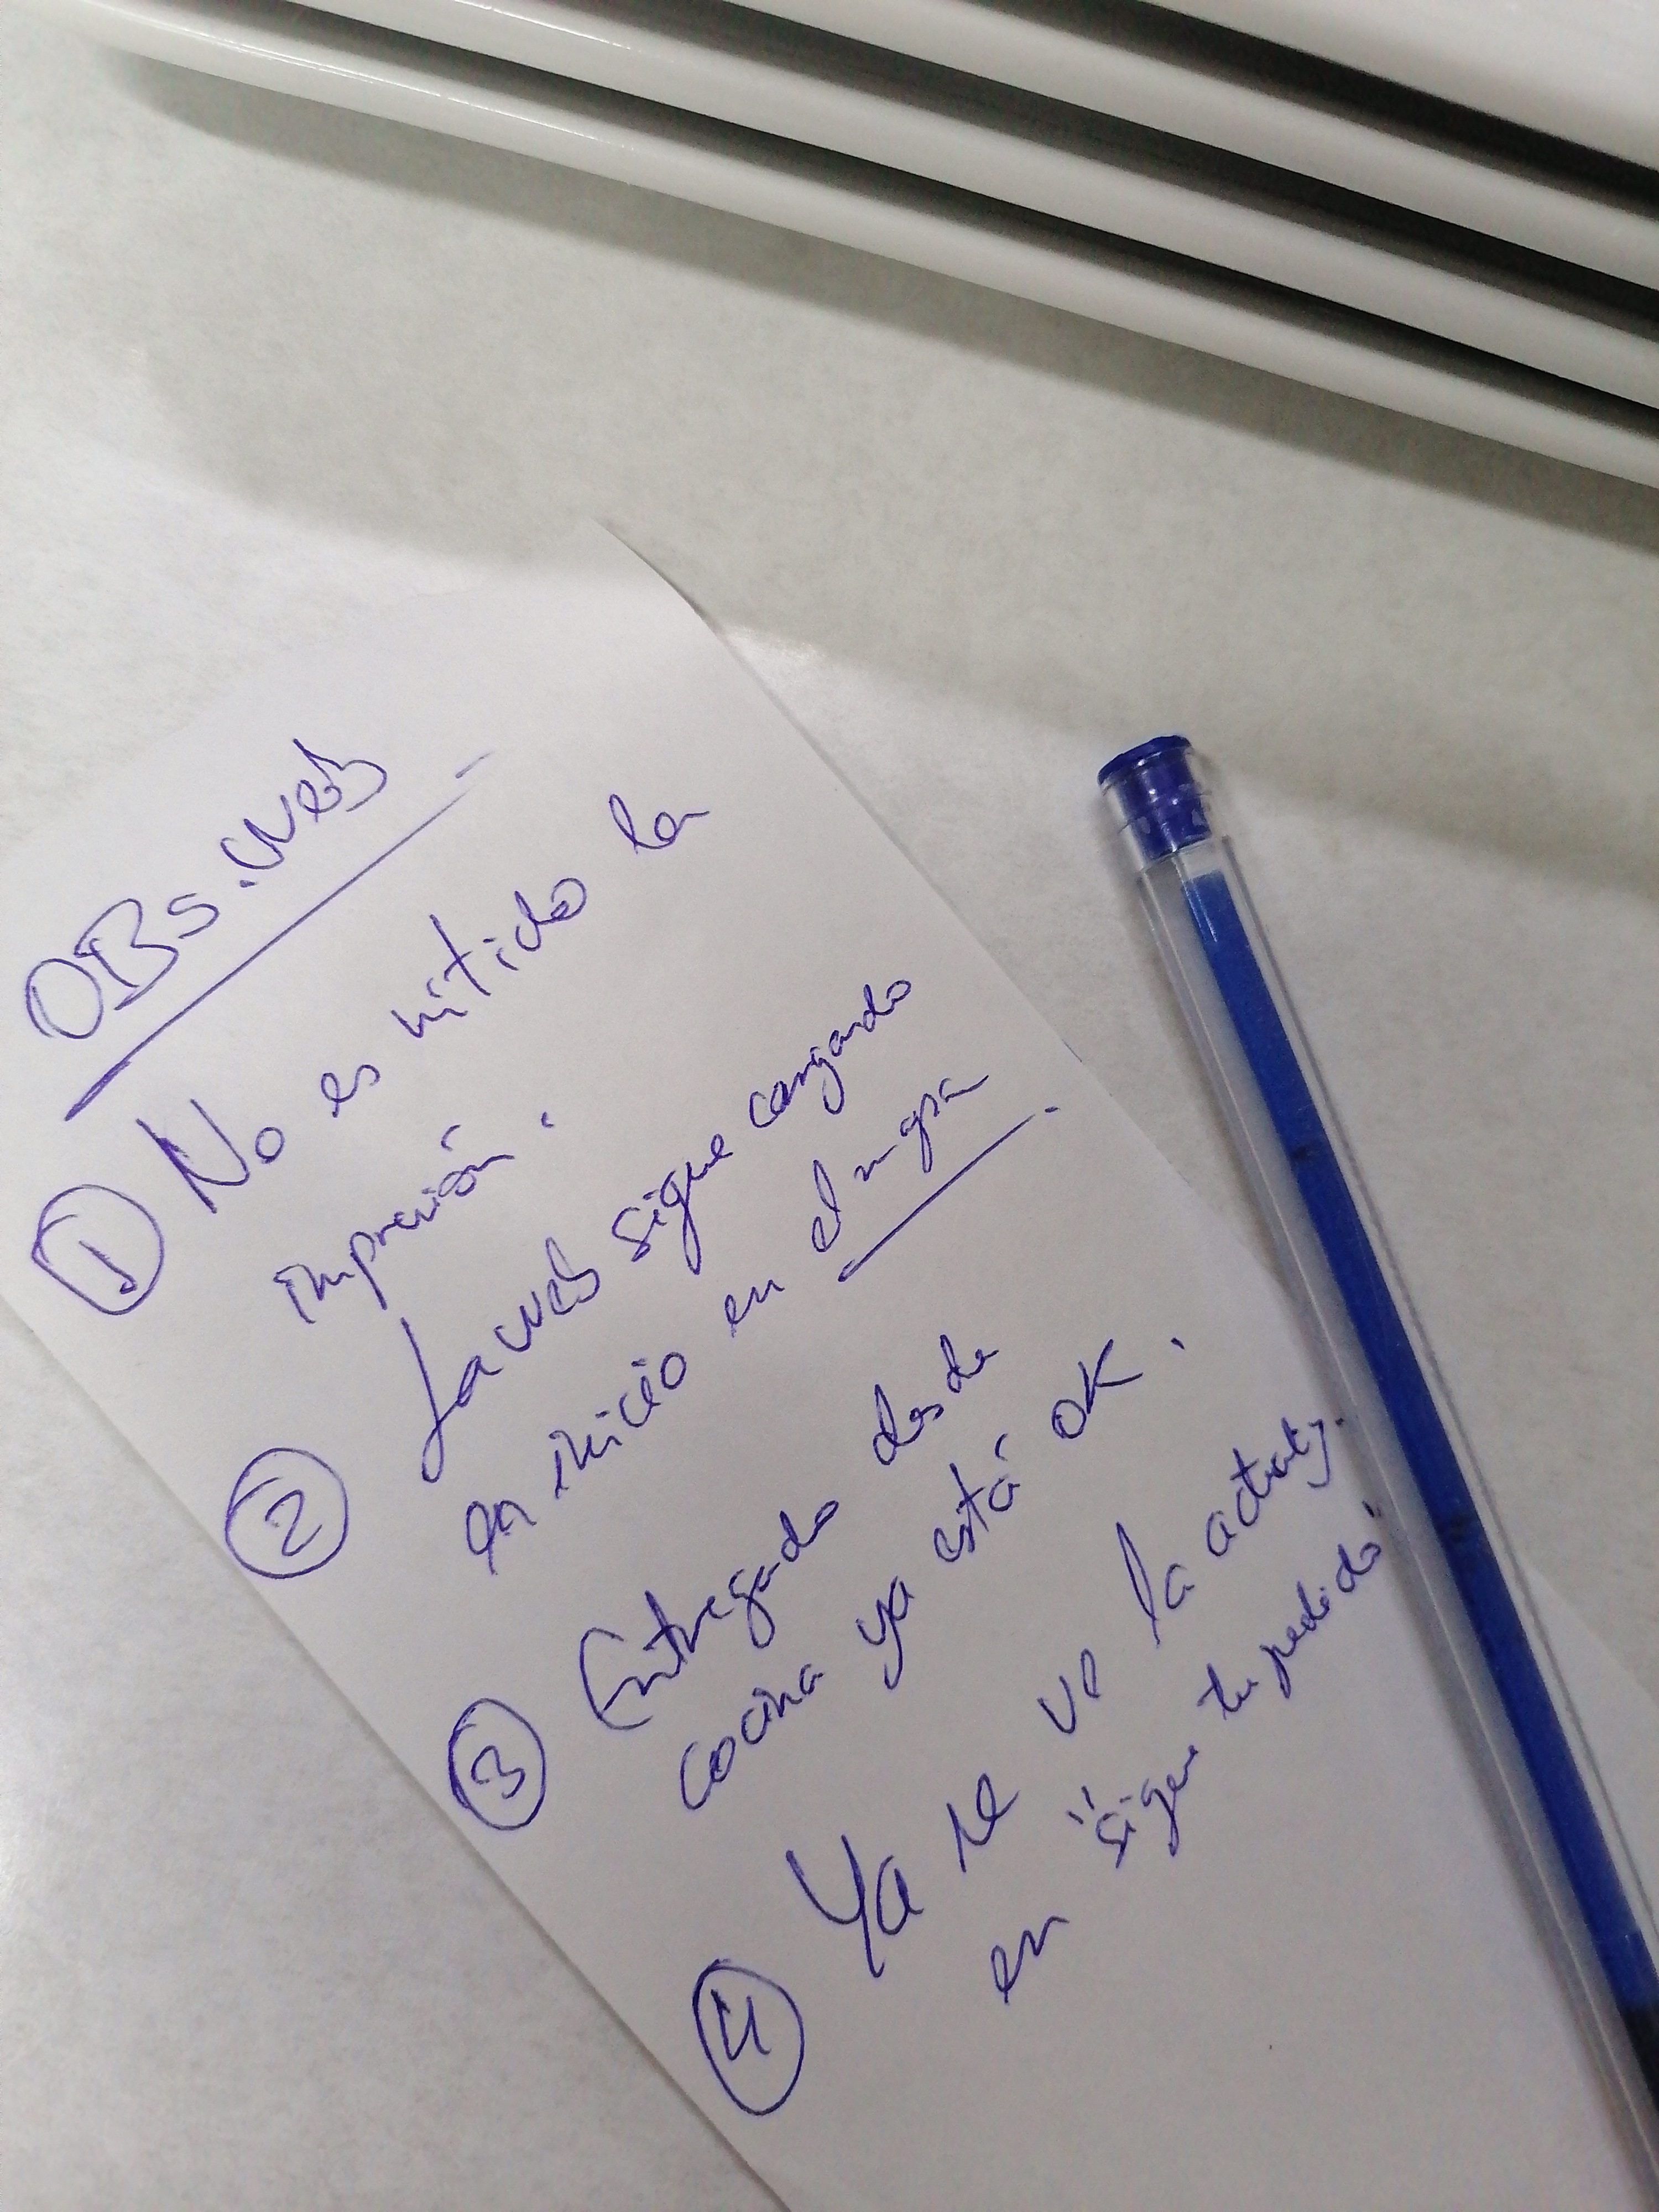 OBs. web
① No es nitido la
impresión.
② La web sigue cargando
en inicio en el mapa
③ Entregado desde
cocina ya está OK.
④ Ya se ve la actualiz.
en "sigue tu pedido"